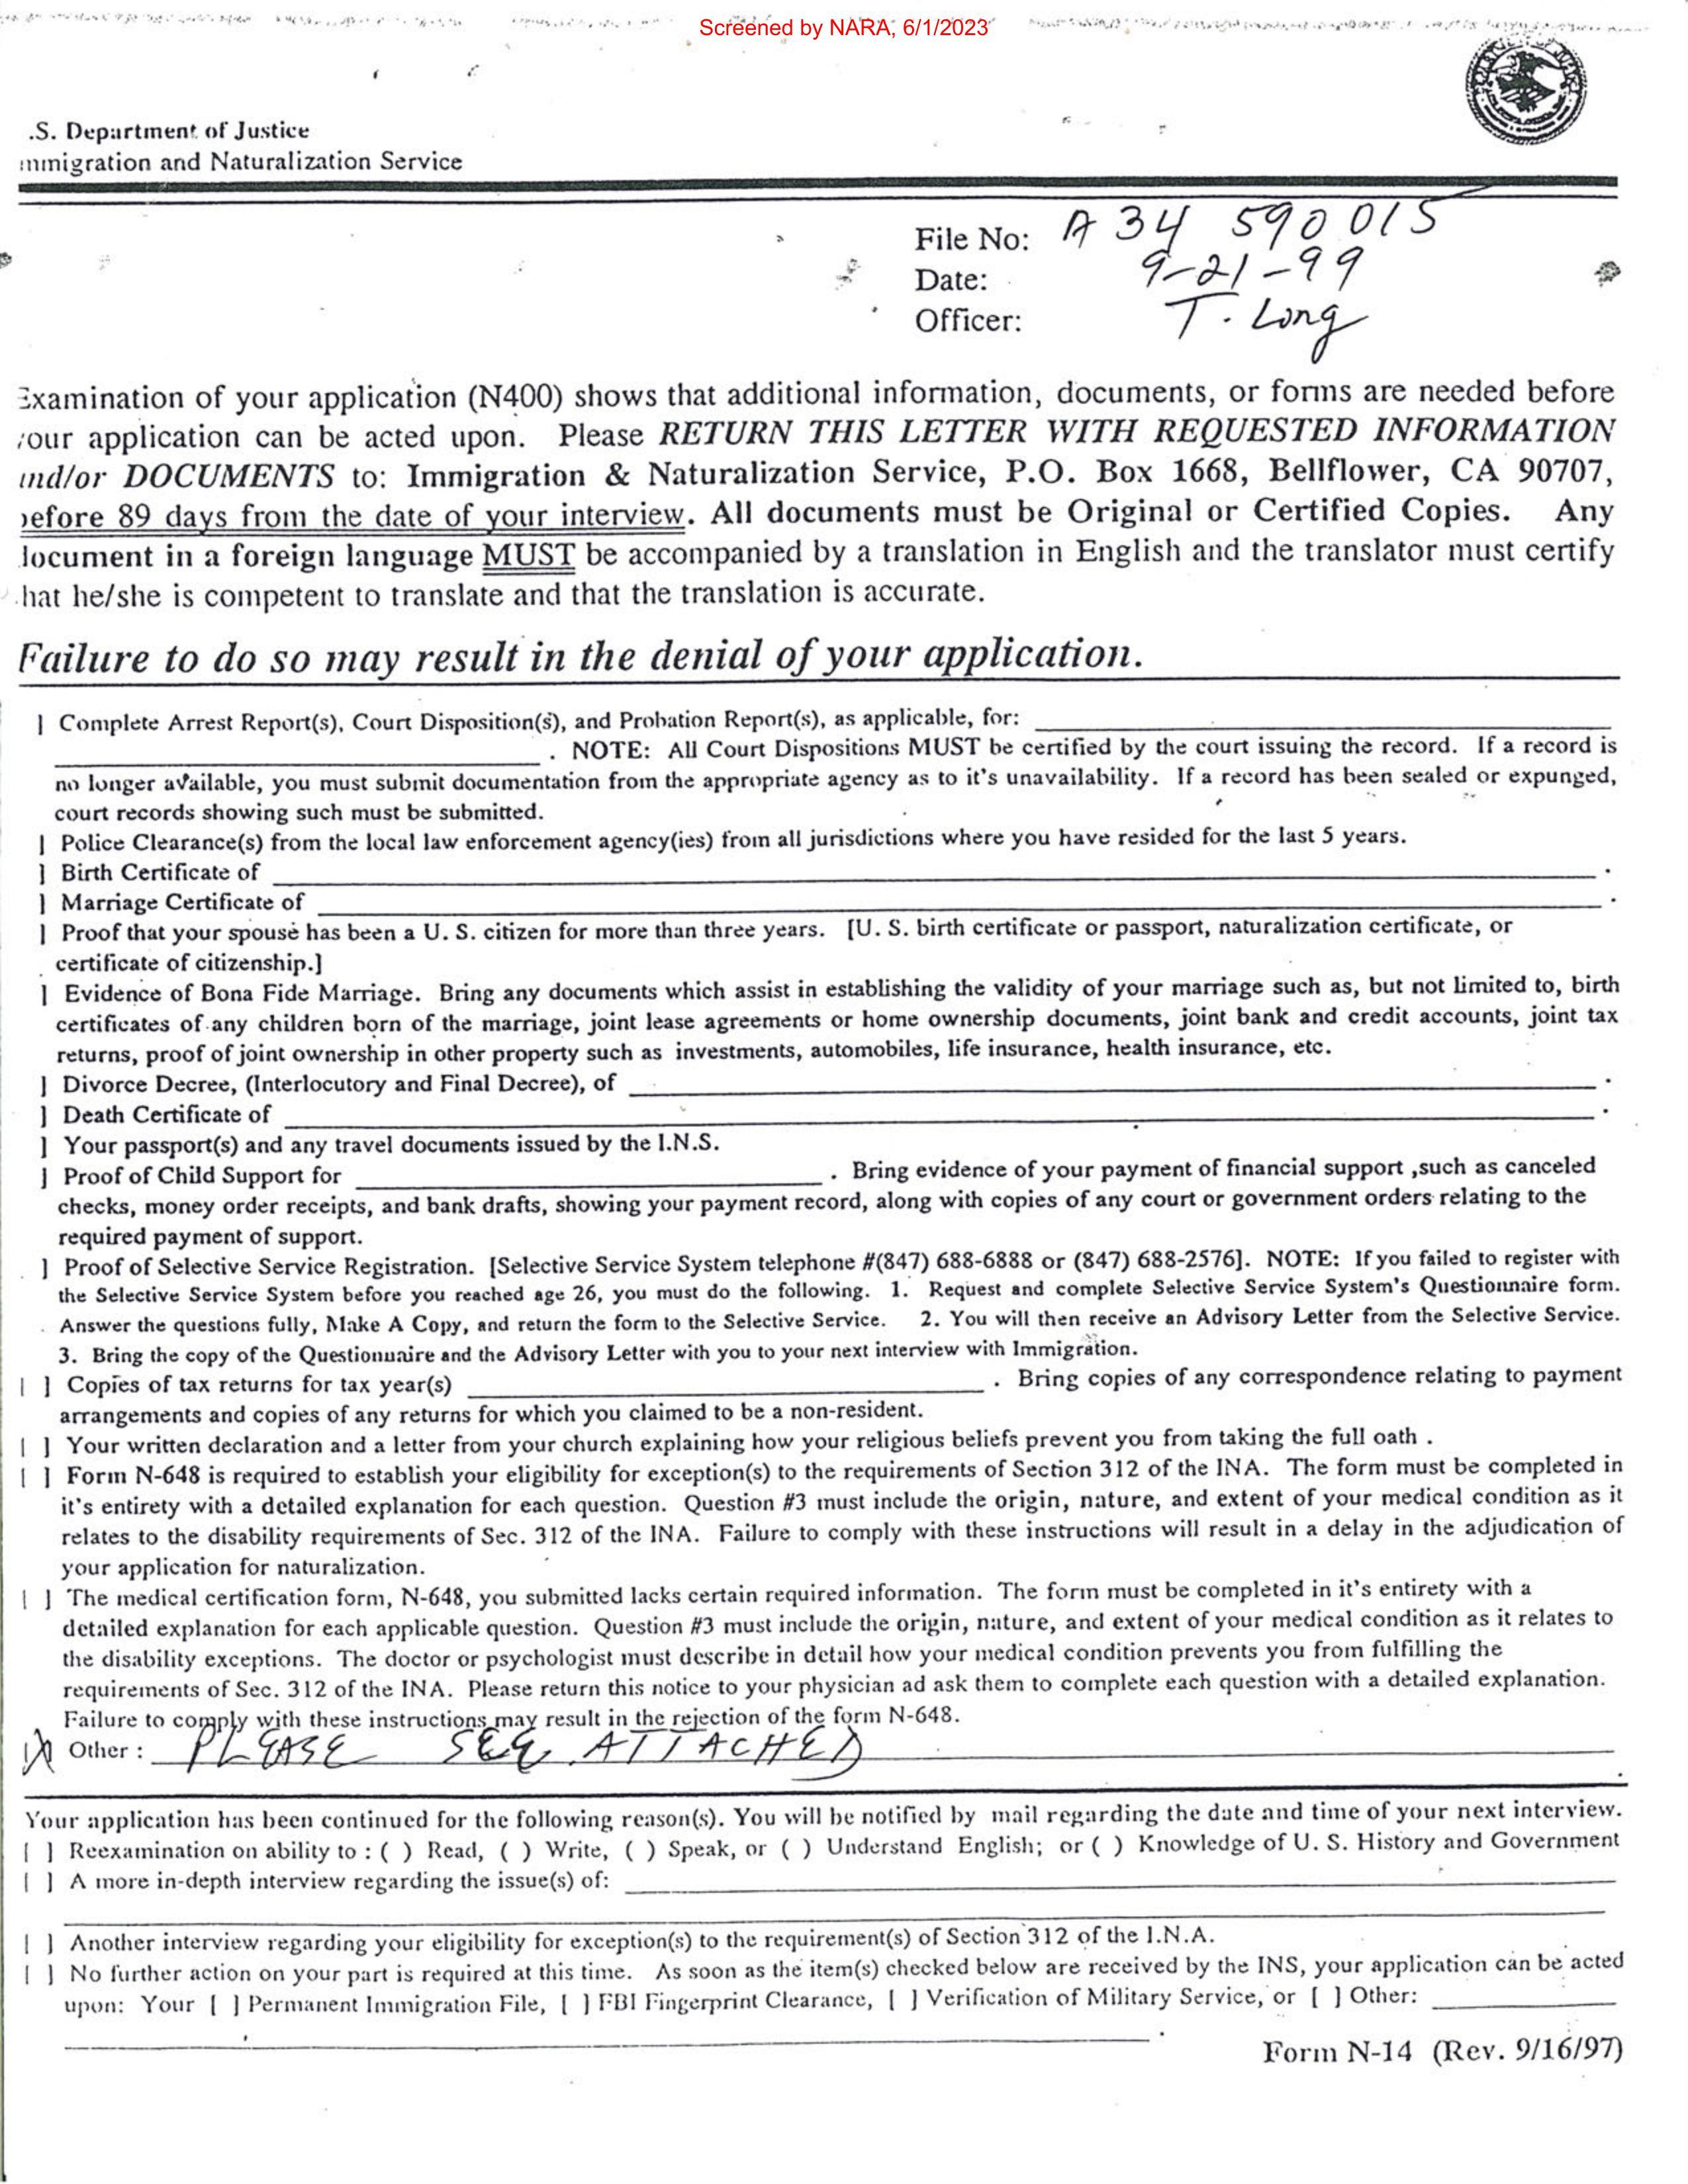 Screened by NARA, 6/1/2023
.S. Department of Justice
mmigration and Naturalization Service
File No: A 34 590 015
Date: 9-21-99
Officer: T. Long
Examination of your application (N400) shows that additional information, documents, or forms are needed before
your application can be acted upon. Please RETURN THIS LETTER WITH REQUESTED INFORMATION
and/or DOCUMENTS to: Immigration & Naturalization Service, P.O. Box 1668, Bellflower, CA 90707,
before 89 days from the date of your interview. All documents must be Original or Certified Copies. Any
document in a foreign language MUST be accompanied by a translation in English and the translator must certify
that he/she is competent to translate and that the translation is accurate.
Failure to do so may result in the denial of your application.
] Complete Arrest Report(s), Court Disposition(s), and Probation Report(s), as applicable, for: ____
____. NOTE: All Court Dispositions MUST be certified by the court issuing the record. If a record is
no longer available, you must submit documentation from the appropriate agency as to it's unavailability. If a record has been sealed or expunged,
court records showing such must be submitted.
] Police Clearance(s) from the local law enforcement agency(ies) from all jurisdictions where you have resided for the last 5 years.
] Birth Certificate of ____.
] Marriage Certificate of ____.
] Proof that your spouse has been a U. S. citizen for more than three years. [U. S. birth certificate or passport, naturalization certificate, or
certificate of citizenship.]
] Evidence of Bona Fide Marriage. Bring any documents which assist in establishing the validity of your marriage such as, but not limited to, birth
certificates of any children born of the marriage, joint lease agreements or home ownership documents, joint bank and credit accounts, joint tax
returns, proof of joint ownership in other property such as investments, automobiles, life insurance, health insurance, etc.
] Divorce Decree, (Interlocutory and Final Decree), of ____.
] Death Certificate of ____.
] Your passport(s) and any travel documents issued by the I.N.S.
] Proof of Child Support for ____. Bring evidence of your payment of financial support ,such as canceled
checks, money order receipts, and bank drafts, showing your payment record, along with copies of any court or government orders relating to the
required payment of support.
] Proof of Selective Service Registration. [Selective Service System telephone #(847) 688-6888 or (847) 688-2576]. NOTE: If you failed to register with
the Selective Service System before you reached age 26, you must do the following. 1. Request and complete Selective Service System's Questionnaire form.
Answer the questions fully, Make A Copy, and return the form to the Selective Service. 2. You will then receive an Advisory Letter from the Selective Service.
3. Bring the copy of the Questionnaire and the Advisory Letter with you to your next interview with Immigration.
[ ] Copies of tax returns for tax year(s) ____. Bring copies of any correspondence relating to payment
arrangements and copies of any returns for which you claimed to be a non-resident.
[ ] Your written declaration and a letter from your church explaining how your religious beliefs prevent you from taking the full oath .
[ ] Form N-648 is required to establish your eligibility for exception(s) to the requirements of Section 312 of the INA. The form must be completed in
it's entirety with a detailed explanation for each question. Question #3 must include the origin, nature, and extent of your medical condition as it
relates to the disability requirements of Sec. 312 of the INA. Failure to comply with these instructions will result in a delay in the adjudication of
your application for naturalization.
[ ] The medical certification form, N-648, you submitted lacks certain required information. The form must be completed in it's entirety with a
detailed explanation for each applicable question. Question #3 must include the origin, nature, and extent of your medical condition as it relates to
the disability exceptions. The doctor or psychologist must describe in detail how your medical condition prevents you from fulfilling the
requirements of Sec. 312 of the INA. Please return this notice to your physician ad ask them to complete each question with a detailed explanation.
Failure to comply with these instructions may result in the rejection of the form N-648.
[X] Other : PLEASE SEE ATTACHED
Your application has been continued for the following reason(s). You will be notified by mail regarding the date and time of your next interview.
[ ] Reexamination on ability to : ( ) Read, ( ) Write, ( ) Speak, or ( ) Understand English; or ( ) Knowledge of U. S. History and Government
[ ] A more in-depth interview regarding the issue(s) of: ____
[ ] Another interview regarding your eligibility for exception(s) to the requirement(s) of Section 312 of the I.N.A.
[ ] No further action on your part is required at this time. As soon as the item(s) checked below are received by the INS, your application can be acted
upon: Your [ ] Permanent Immigration File, [ ] FBI Fingerprint Clearance, [ ] Verification of Military Service, or [ ] Other: ____
____.
Form N-14 (Rev. 9/16/97)